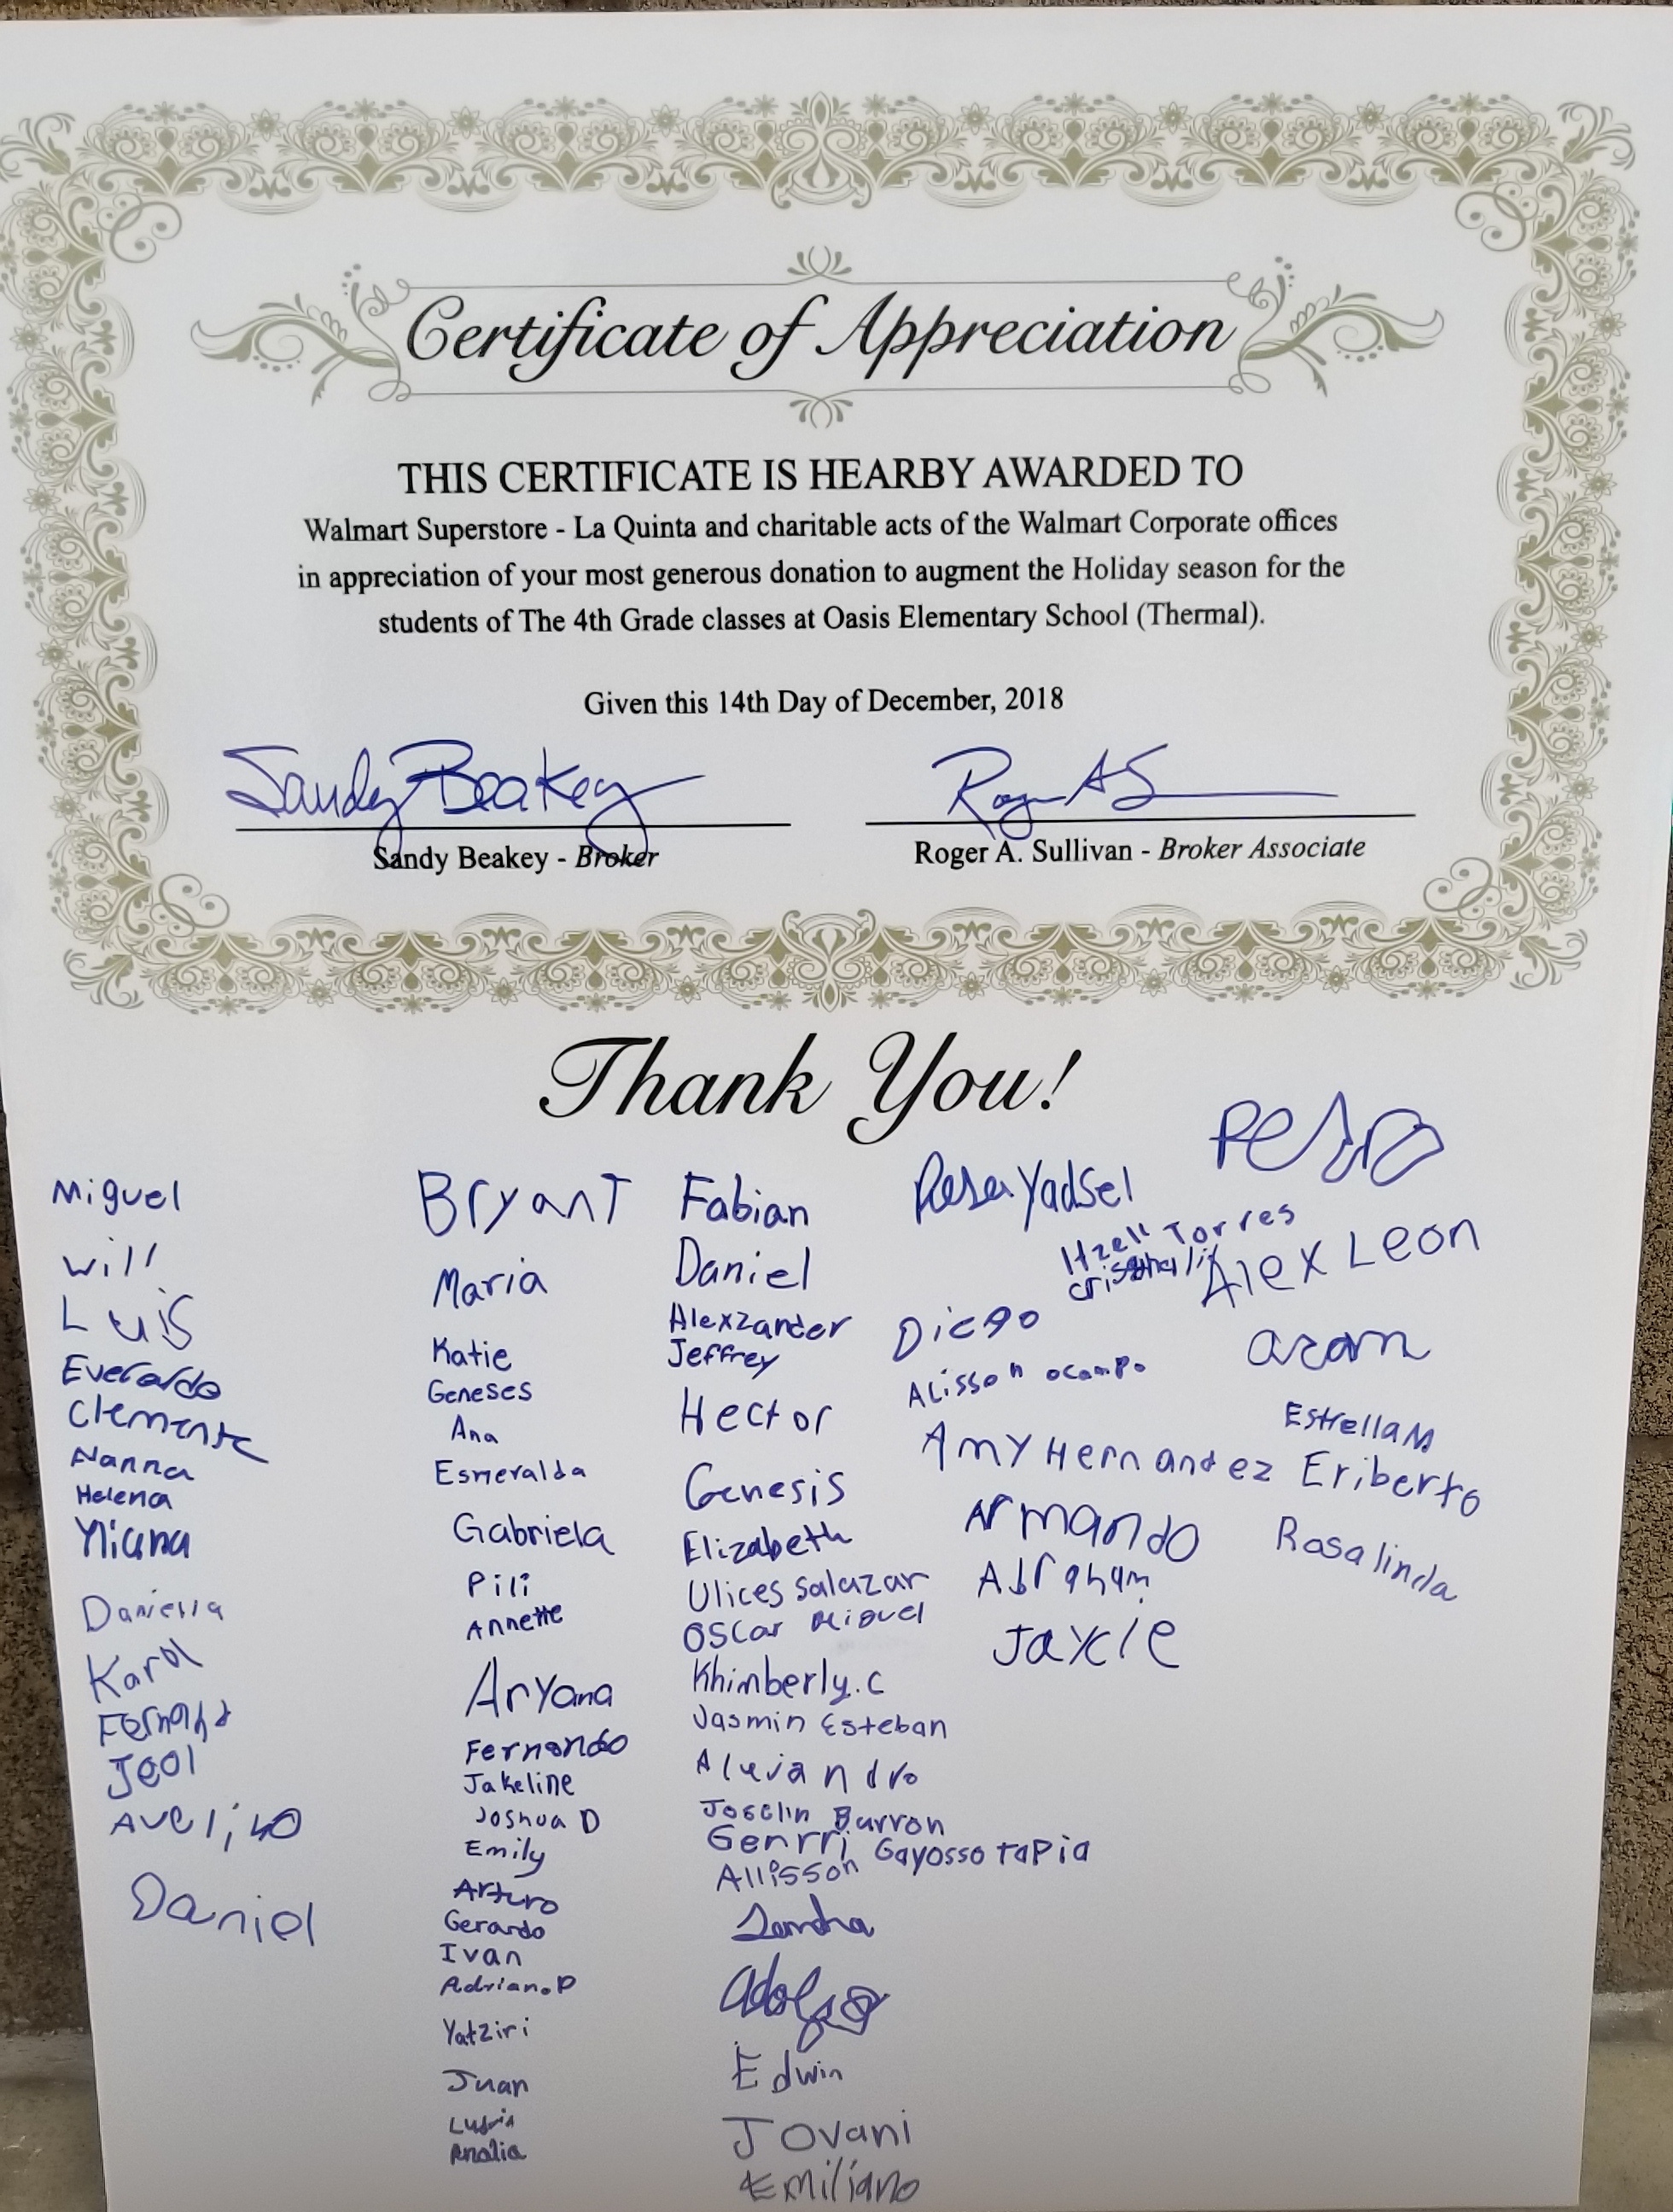 Certificate of Appreciation
THIS CERTIFICATE IS HEARBY AWARDED TO
Walmart Superstore - La Quinta and charitable acts of the Walmart Corporate offices
in appreciation of your most generous donation to augment the Holiday season for the
students of The 4th Grade classes at Oasis Elementary School (Thermal).
Given this 14th Day of December, 2018
Sandy Beakey
Sandy Beakey - Broker
Roger A. Sullivan - Broker Associate
Thank You!
Miguel
Will
Luis
Everardo
Clemente
Nanna
Helena
Daniella
Karol
Jeol
Avelino
Daniel
Bryant
Maria
Katie
Geneses
Ana
Esmeralda
Gabriela
Pili
Annette
Aryana
Fernando
Jakeline
Joshua D
Emily
Arturo
Gerardo
Ivan
Adriano.P
Yatziri
Juan
Analia
Fabian
Daniel
Alexzander
Jeffrey
Hector
Genesis
Elizabeth
Ulices Salazar
Oscar Miguel
Khimberly.c
Jasmin Esteban
Joselin Barron
Genrri Gayosso Tapia
Allisson
Edwin
Jovani
Emiliano
Yadsel
Torres
Diego
Alisson ocampo
Amy Hernandez
Armando
Abraham
Jaycie
Pedro
Alex Leon
Estrella M
Eriberto
Rosalinda